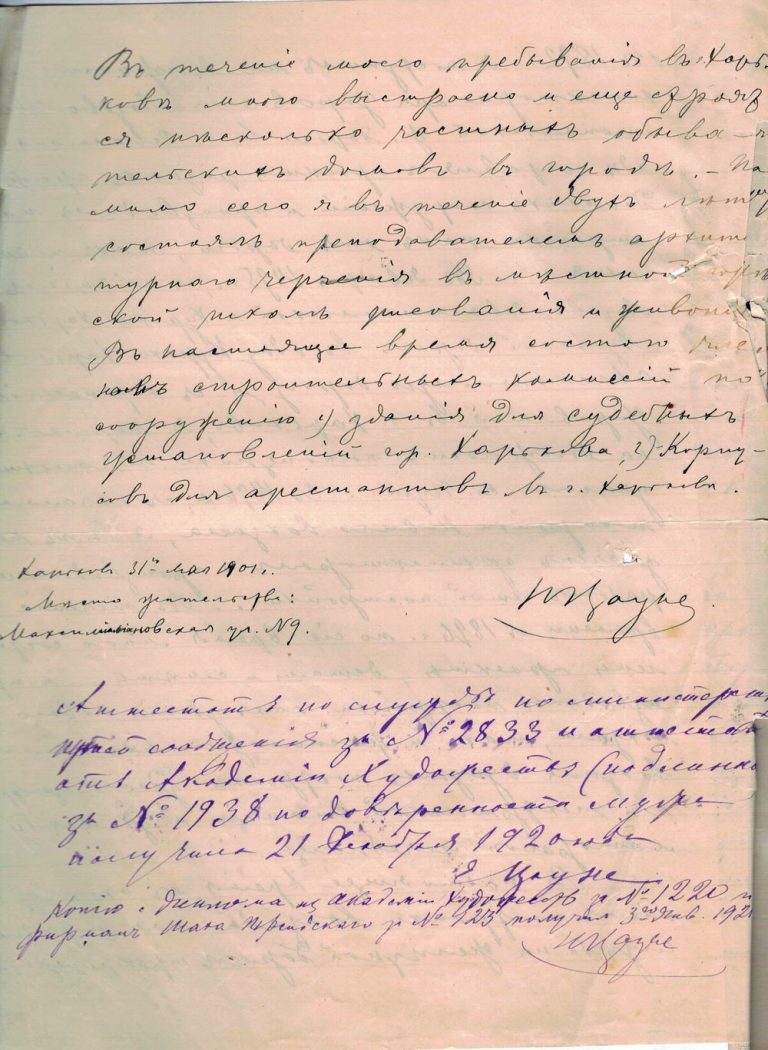 Въ теченіе моего пребыванія въ Харь-
ковѣ мною выстроено и еще строят
ся нѣсколько частныхъ обыва-
тельскихъ домовъ въ городѣ. – По
мимо сего я въ теченіе двухъ лѣтъ
состоялъ преподавателемъ архитек
турнаго черченія въ мѣстной город
ской школѣ рисованія и живописи
Въ настоящее время состою чле
номъ строительныхъ комиссій по
сооруженію 1) зданія для судебныхъ
установленій гор. Харькова, 2) Корпу-
совъ для арестантовъ въ г. Харьковѣ.
Харьковъ 31го мая 1901 г.
Мѣсто жительства:
Максимиліановская ул. № 9.
И Цауне
Аттестатъ по службѣ по министерству
путей сообщенія за № 2833 и аттестат
отъ Академіи Художествъ (подлинно
за № 1938 по довѣренности мужа
получила 21 Декабря 1920 года
Е Цауне
Копію с диплома из Академіи Художествъ за № 1220 и
фирман Шаха Персидского за № 123 получил 3го Янв. 192
И Цауне